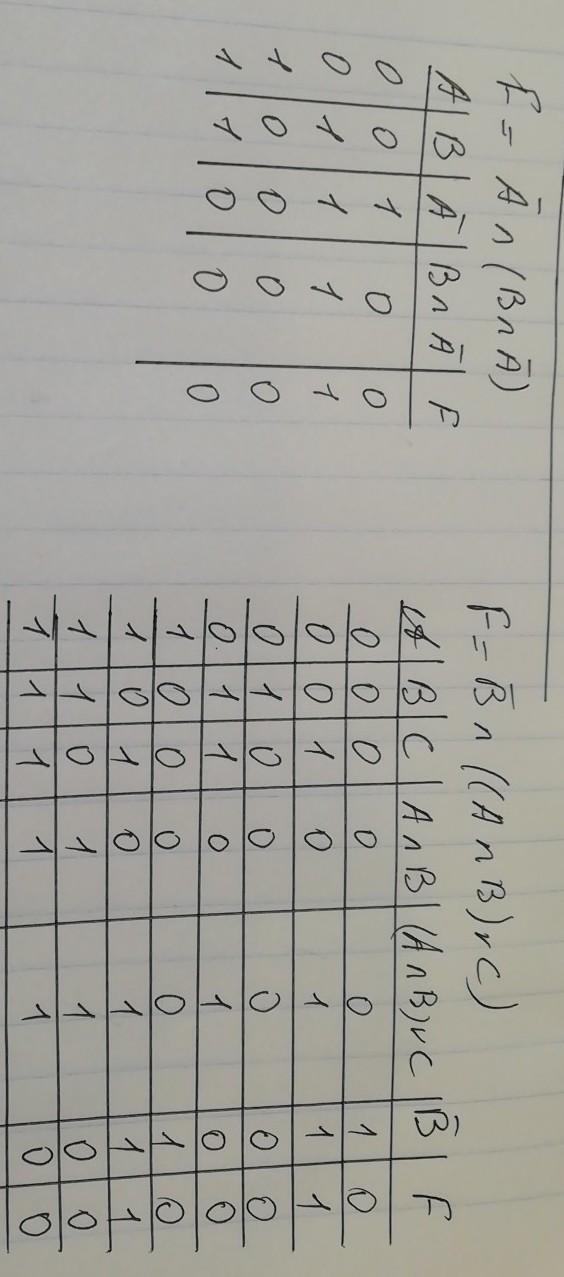 F = Ā ∩ (B ∩ Ā)
A | B | Ā | B ∩ Ā | F
0 0 1 0 0
0 1 1 1 1
1 0 0 0 0
1 1 0 0 0
F = B̄ ∩ ((A ∩ B) ∨ C)
A | B | C | A ∩ B | (A ∩ B) ∨ C | B̄ | F
0 0 0 0 0 1 0
0 0 1 0 1 1 1
0 1 0 0 0 0 0
0 1 1 0 1 0 0
1 0 0 0 0 1 0
1 0 1 0 1 1 1
1 1 0 1 1 0 0
1 1 1 1 1 0 0